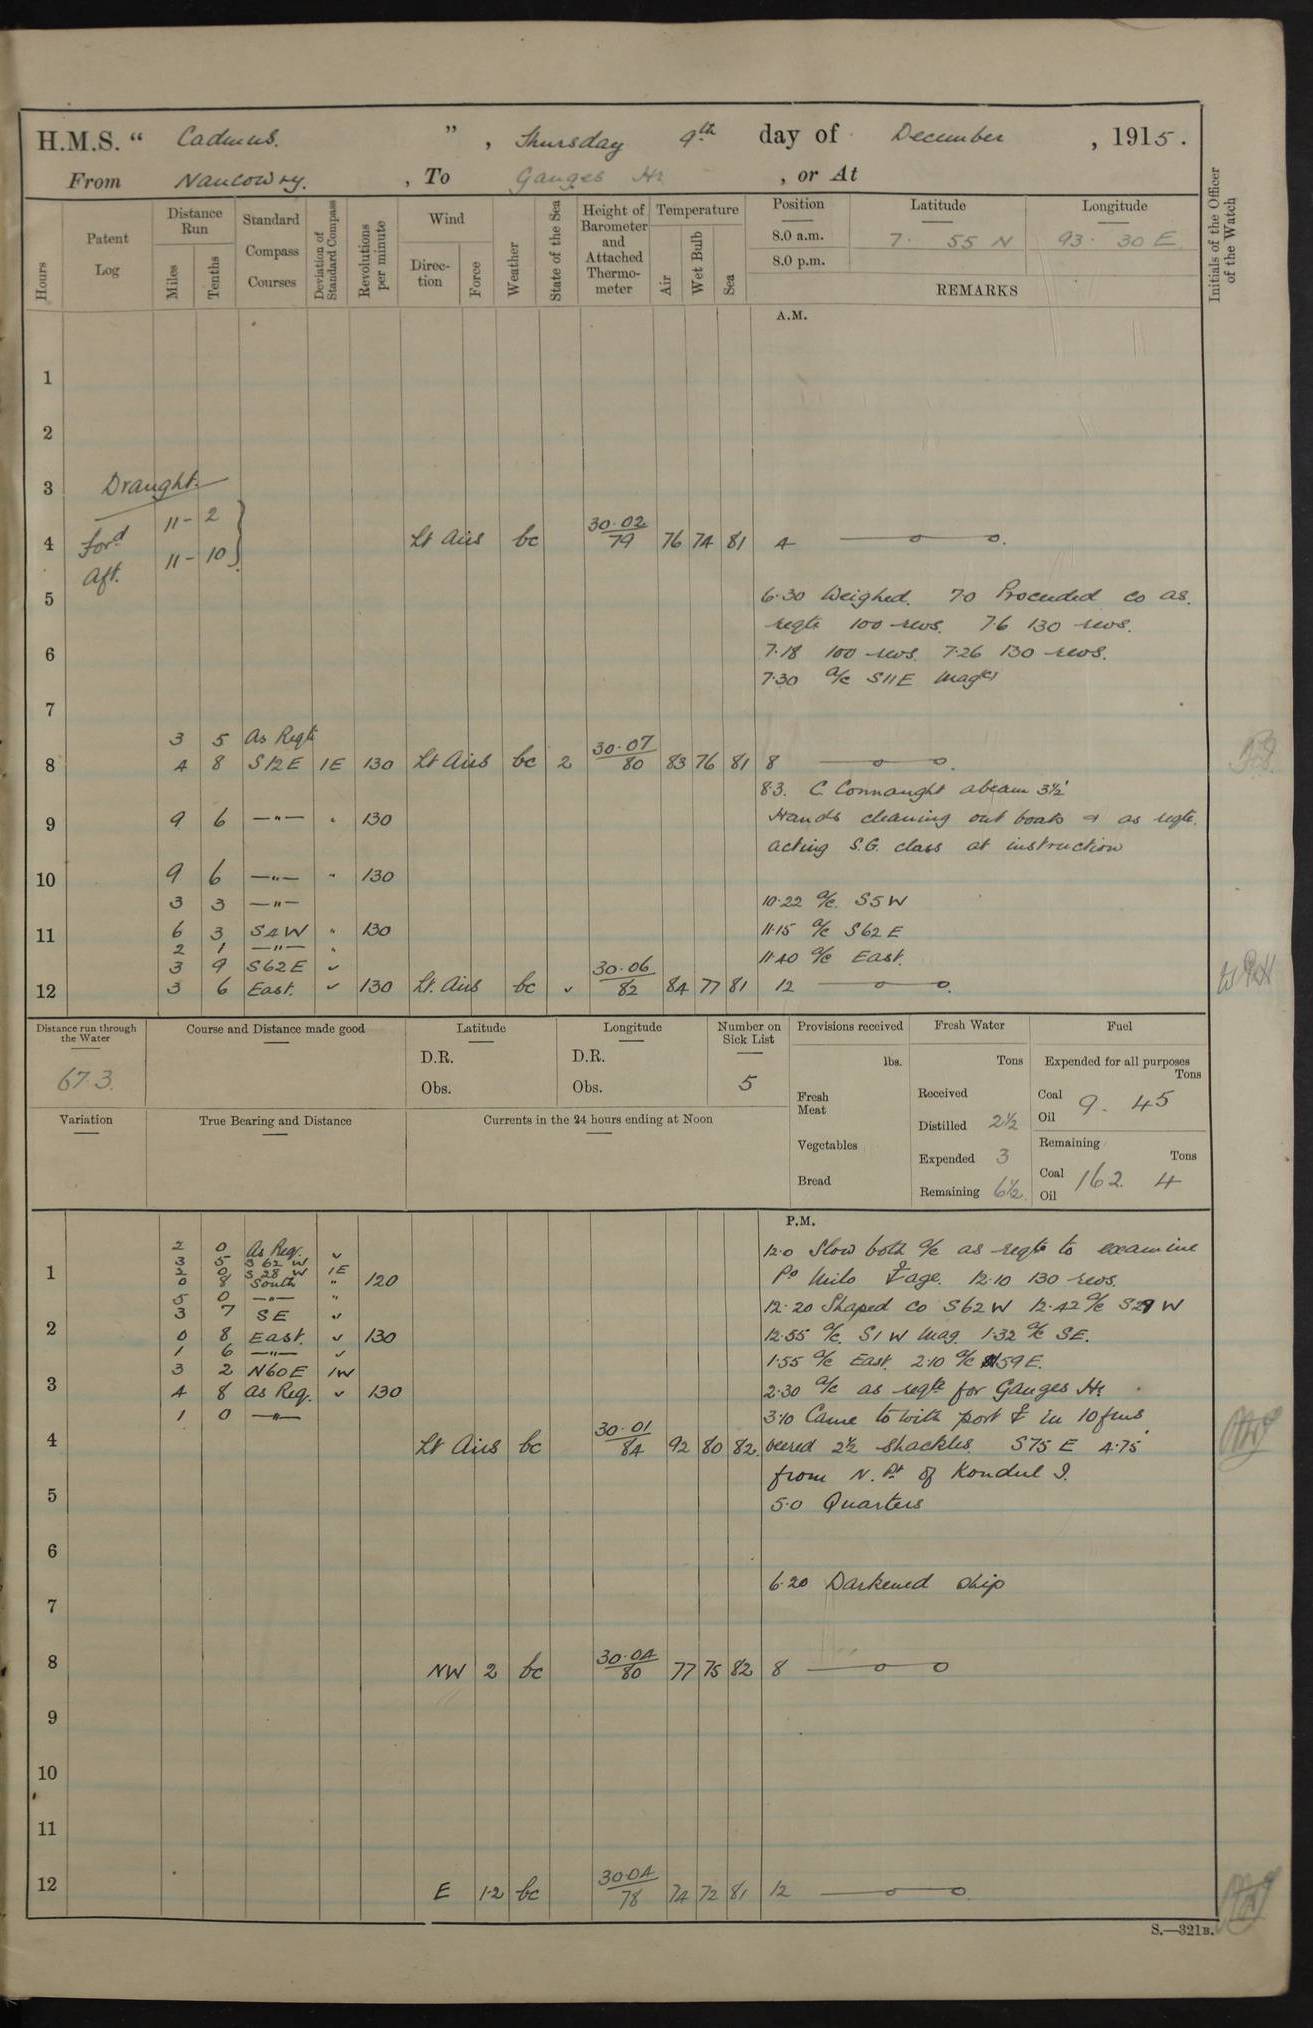 H.M.S. “ Cadmus. ” , Thursday 9th day of December , 1915.
From Nancowry. , To Ganges Hr , or At
Hours
Patent Log
Distance Run
Miles
Tenths
Standard Compass Courses
Deviation of Standard Compass
Revolutions per minute
Wind
Direc-tion
Force
Weather
State of the Sea
Height of Barometer and Attached Thermo-meter
Temperature
Air
Wet Bulb
Sea
Position
8.0 a.m.
8.0 p.m.
Latitude
7. 55 N
Longitude
93. 30 E
REMARKS
Initials of the Officer of the Watch
A.M.
1
2
3 Draught.
Ford 11 - 2
4 Lt Airs bc 30.02/79 76 74 81 4
Aft. 11 - 10
5 6.30 Weighed. 7.0 Proceeded co as.
reqte 100 revs. 7.6 130 revs.
6 7.18 100 revs. 7.26 130 revs.
7.30 a/c S11E Mag
7
3 5 As Reqte
8 4 8 S12E 1E 130 Lt Airs bc 2 30.07/80 83 76 81 8
8.3. C. Connaught abeam 3½'
9 9 6 —"— " 130 Hands cleaning out boats & as reqte.
acting S.G. class at instruction
10 9 6 —"— " 130
3 3 —"— 10.22 a/c. S5W
11 6 3 S4W " 130 11.15 a/c S62E
2 1 —"— "
3 9 S62E 11.40 a/c East.
12 3 6 East. 130 Lt. Airs bc 30.06/82 84 77 81 12
Distance run through the Water
67.3.
Course and Distance made good
Latitude
D.R.
Obs.
Longitude
D.R.
Obs.
Number on Sick List
5
Provisions received
lbs.
Fresh Meat
Vegetables
Bread
Fresh Water
Tons
Received
Distilled 2½
Expended 3
Remaining 6½
Fuel
Expended for all purposes
Tons
Coal 9. 45
Oil
Remaining
Tons
Coal 162 4
Oil
Variation
True Bearing and Distance
Currents in the 24 hours ending at Noon
P.M.
2 0 As Req. 12.0 Slow both a/c as reqte to examine
3 5 S 62 W
1 2 0 S 28 W 1E Po Milo age. 12.10 130 revs.
0 8 South " 120
5 0 —"— " 12.20 Shaped co S62W 12.42 a/c S29W
3 7 SE
2 0 8 East. 130 12.55 a/c. S1W Mag. 1.32 a/c SE.
1 6 —"— 1.55 a/c East. 2.10 a/c 59E.
3 3 2 N60E 1W
4 8 As Req. 130 2.30 a/c as reqte for Ganges Hr
1 0 —"— 3.10 Came to with port in 10 fms
4 Lt Airs bc 30.01/84 92 80 82 veered 2½ shackles. S75E 4.75
from N. Pt of Kondul I.
5 5.0 Quarters
6
6.20 Darkened ship
7
8 NW 2 bc 30.04/80 77 75 82 8
9
10
11
12 E 1.2 bc 30.04/78 74 72 81 12
S.—321B.